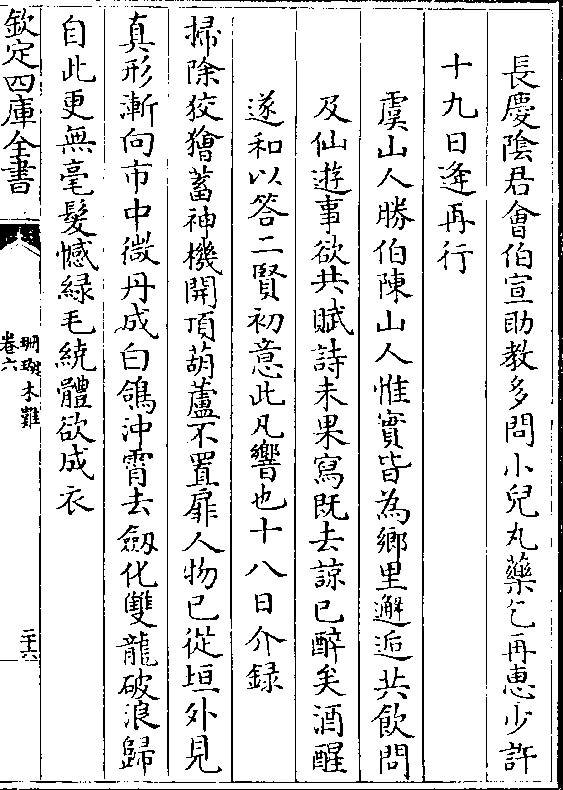 長慶陰君會伯宣助教多問小兒丸藥乞再惠少許
十九日逄再行
虞山人勝伯陳山人惟實皆為鄉里邂逅共飲問
及仙遊事欲共賦詩未果寫既去諒已醉矣酒醒
遂和以答二賢初意此凡響也十八日介録
掃除狡獪蓄神機開頂葫蘆不置扉人物已從垣外見
真形漸向市中微丹成白鴿沖霄去劔化雙龍破浪歸
自此更無毫髮憾緑毛繞體欲成衣
欽定四庫全書
珊瑚木難
卷六
二十六